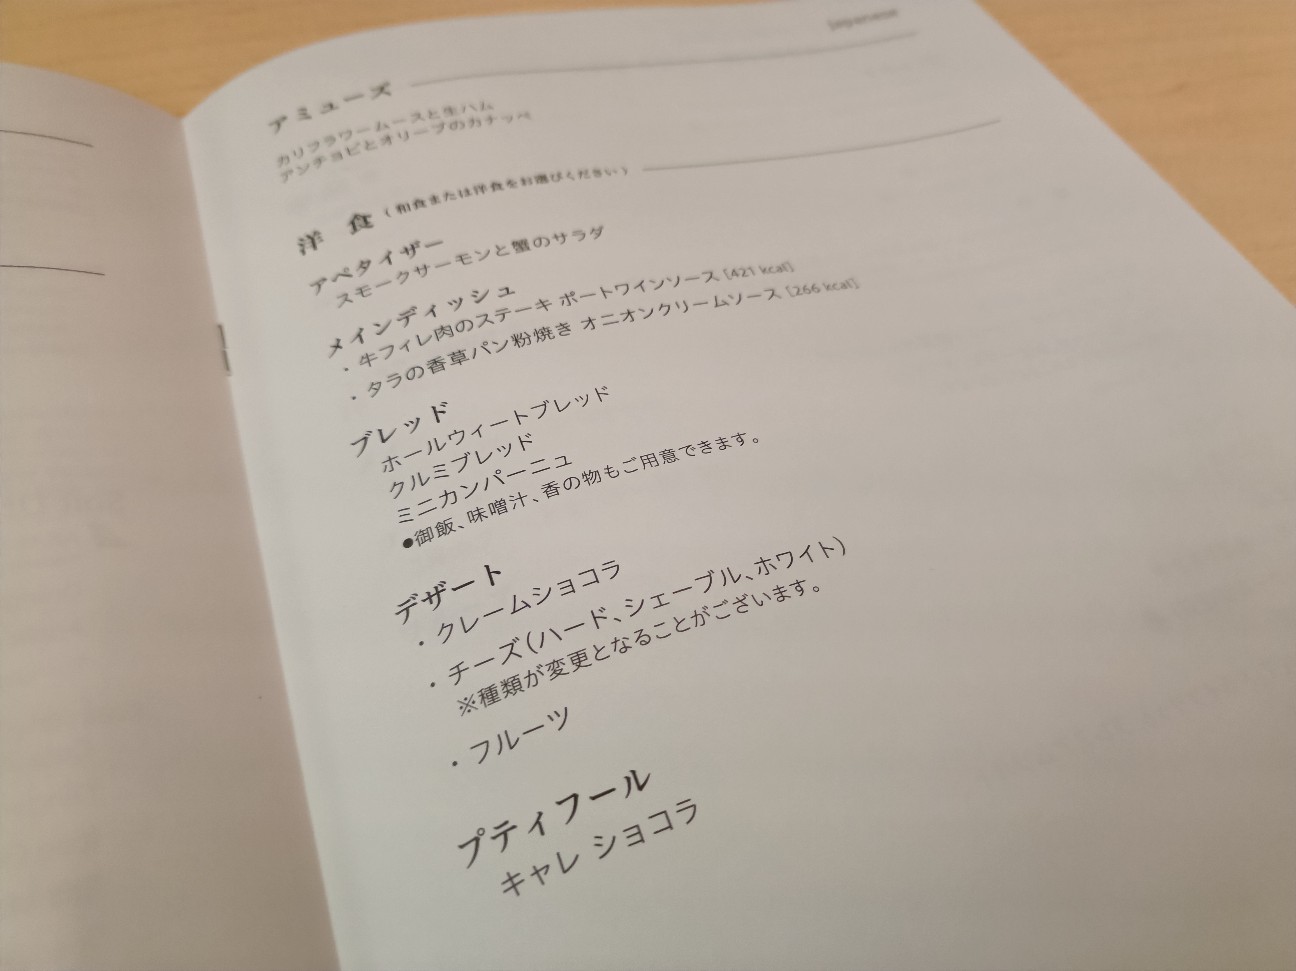 Japanese
アミューズ
カリフラワームースと生ハム
アンチョビとオリーブのカナッペ
洋 食 (和食または洋食をお選びください)
アペタイザー
スモークサーモンと蟹のサラダ
メインディッシュ
・牛フィレ肉のステーキ ポートワインソース [421 kcal]
・タラの香草パン粉焼き オニオンクリームソース [266 kcal]
ブレッド
ホールウィートブレッド
クルミブレッド
ミニカンパーニュ
●御飯、味噌汁、香の物もご用意できます。
デザート
・クレームショコラ
・チーズ(ハード、シェーブル、ホワイト)
※種類が変更となることがございます。
・フルーツ
プティフール
キャレ ショコラ